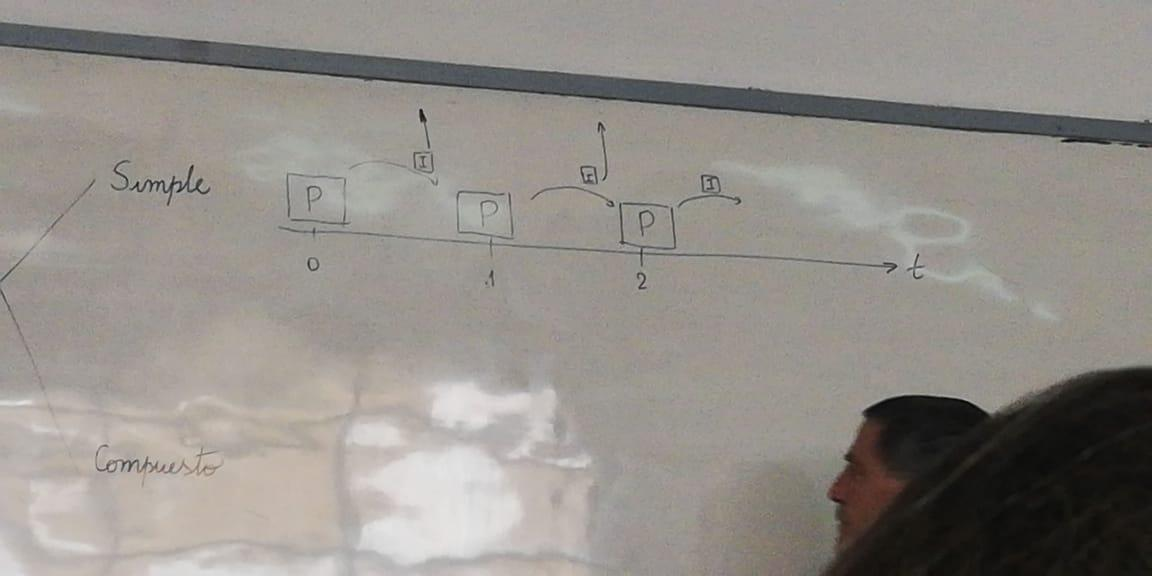 Simple
I I I
P P P
0 1 2 t
Compuesto